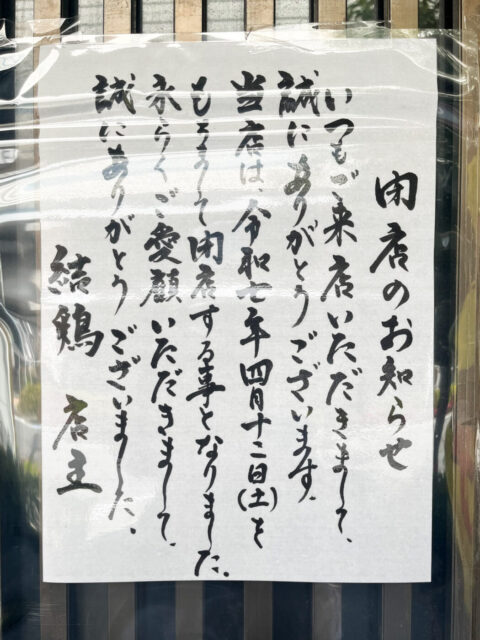 閉店のお知らせ
いつもご来店いただきまして、
誠にありがとうございます。
当店は、令和七年四月十二日(土)を
もちまして閉店する事となりました。
永らくご愛顧いただきまして、
誠にありがとうございました。
結鶏 店主